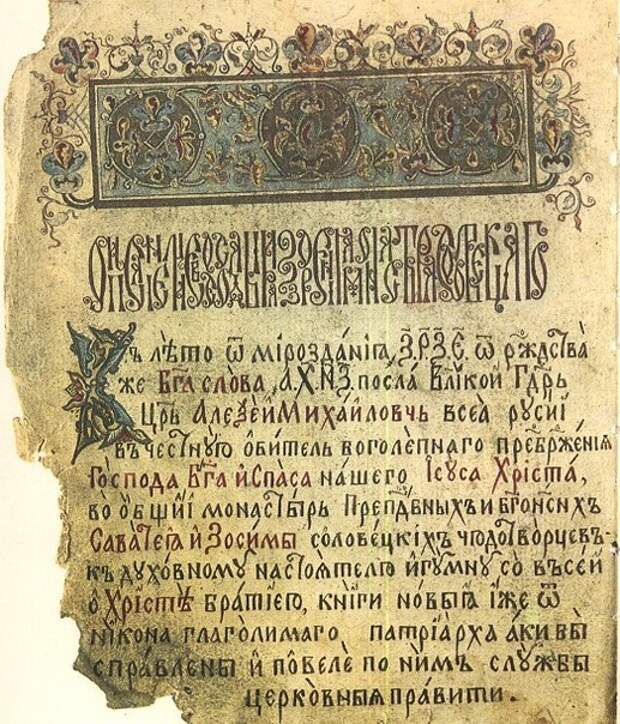 Въ лѣто ѿ мірозданіѧ, З҃.Р҃.Ѯ҃.Е҃. ѿ рж҃дства
же бг҃а слова, А҃.Х҃.Н҃.З҃. посла вели́кой гдⷭ҇рь
ц҃рь Алеѯе́й Миха́йловчь всеа̀ русі́ї
въ че́стную ѻби́тель боголѣпнаго преѻбрже́нія
Го́спода Бг҃а и̓ Спа́са на́шего І̓су́са Хрі́ста,
во ѻ́бщиї монасты́рь Преподо́бныхъ и бг҃оно́сныхъ
Сава́теѧ и̓ Зоси́мы соловецкі́хъ чюдотво́рцевъ-
къ дꙋхо́вномꙋ настоѧ́телю и̓гꙋ́мнꙋ со всей
ѻ̓ Хрі́стѣ бра́тіею, кни́ги но́выѧ и̓́же ѿ
ни́кона глаголи́маго патріа́рха а́ки бы
спра́влены и̓ повелѣ̀ по ни́мъ слꙋ́жбы
церко́вныѧ пра́вити.